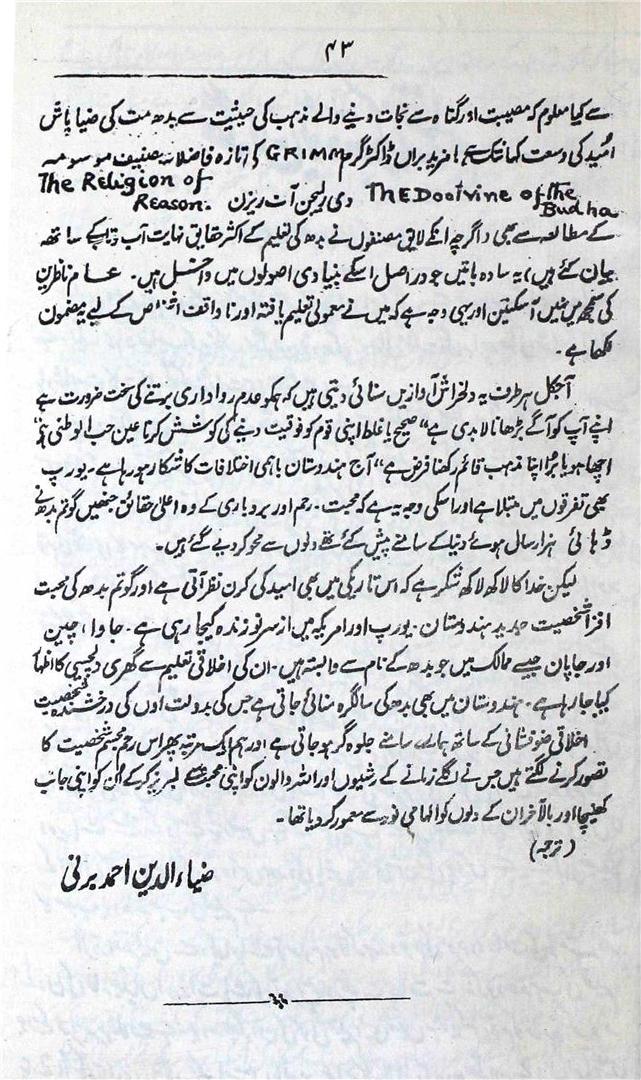 ۴۳
سے کیا معلوم کہ مصیبت اور گناہ سے نجات دینے والے مذہب کی حیثیت سے بدھ مت کی ضیا پاش
امید کی وسعت کہانتک ہے! مزید براں ڈاکٹر گرم GRIMM کا تازہ فاضلانہ تصنیف موسومہ
The Religion of Reason. دی ریلیجن آف ریزن THE Dootvine of the Budha
کے مطالعہ سے بھی (اگرچہ انکے لایق مصنفوں نے بدھ کی تعلیم کے اکثر حقایق نہایت آب و تاب کے ساتھ
بیان کئے ہیں) یہ سادہ باتیں جو دراصل اسکے بنیادی اصولوں میں داخل ہیں۔ عام ناظرین
کی سمجھ میں نہیں آسکتیں اور یہی وجہ ہے کہ میں نے معمولی تعلیم یافتہ اور ناواقف اشخاص کے لیے یہ مضمون
لکھا ہے۔
آجکل ہر طرف یہ دلخراش آوازیں سنائی دیتی ہیں کہ ہمکو عدم رواداری برتنے کی سخت ضرورت ہے
اپنے آپ کو آگے بڑھانا لابدی ہے "صحیح یا غلط اپنی قوم کو فوقیت دینے کی کوشش کرنا عین حب الوطنی ہے
اچھا ہو یا برا اپنا مذہب قائم رکھنا فرض ہے" آج ہندوستان باہمی اختلافات کا شکار ہو رہا ہے۔ یورپ
بھی تفرقوں میں مبتلا ہے اور اسکی وجہ یہ ہے کہ محبت۔ رحم اور بردباری کے وہ اعلیٰ حقائق جنھیں گوتم بدھ نے
ڈہائی ہزار سال ہوئے دنیا کے سامنے پیش کئے تھے دلوں سے محو کر دیے گئے ہیں۔
لیکن خدا کا لاکھ لاکھ شکر ہے کہ اس تاریکی میں بھی امید کی کرن نظر آتی ہے اور گوتم بدھ کی محبت
افزا شخصیت جدید ہندوستان۔ یورپ اور امریکہ میں از سر نو زندہ کیجا رہی ہے۔ جاوا، چین
اور جاپان جیسے ممالک میں جو بدھ کے نام سے وابستہ ہیں۔ ان کی اخلاقی تعلیم سے گہری دلچسپی کا اظہار
کیا جا رہا ہے۔ ہندوستان میں بھی بدھ کی سالگرہ منائی جاتی ہے جس کی بدولت اون کی درخشندہ شخصیت
اخلاقی ضو فشانی کے ساتھ ہمارے سامنے جلوہ گر ہو جاتی ہے اور ہم ایک مرتبہ پھر اس رحم مجسم شخصیت کا
تصور کرنے لگتے ہیں جس نے اگلے زمانے کے رشیوں اور اللہ والوں کو اپنی محبت سے لبریز کر کے اُن کو اپنی جانب
کھینچا اور بالآخر ان کے دلوں کو الہامی نور سے معمور کر دیا تھا۔
(ترجمہ)
ضیاء الدین احمد برنی